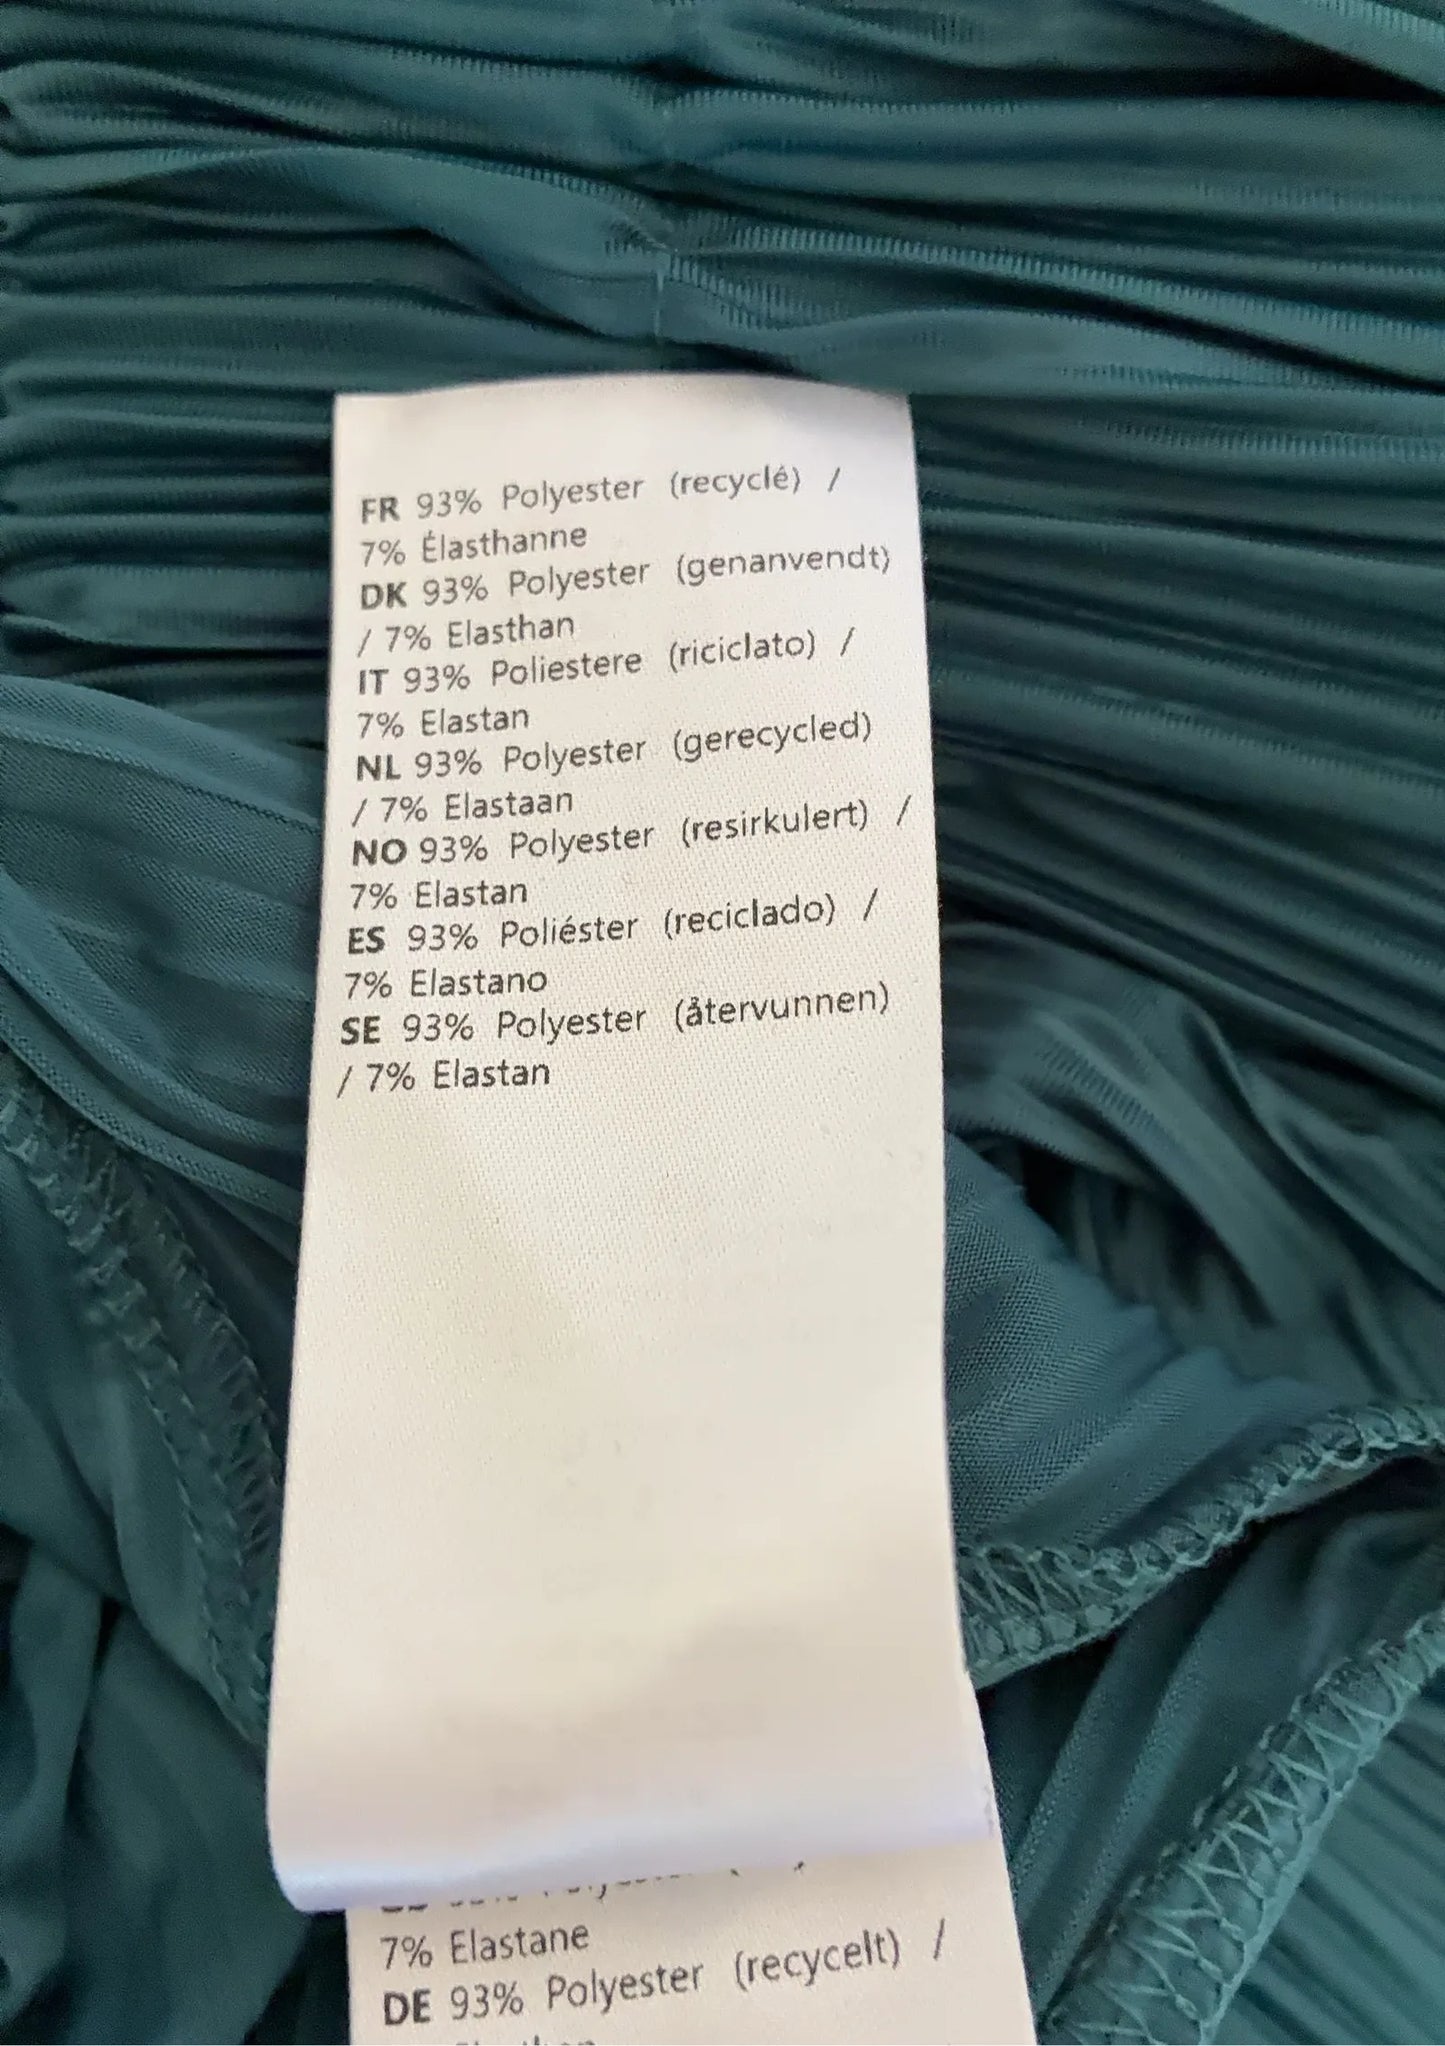 FR 93% Polyester (recyclé) /
7% Élasthanne
DK 93% Polyester (genanvendt)
/ 7% Elasthan
IT 93% Poliestere (riciclato) /
7% Elastan
NL 93% Polyester (gerecycled)
/ 7% Elastaan
NO 93% Polyester (resirkulert) /
7% Elastan
ES 93% Poliéster (reciclado) /
7% Elastano
SE 93% Polyester (återvunnen)
/ 7% Elastan
7% Elastane
DE 93% Polyester (recycelt) /